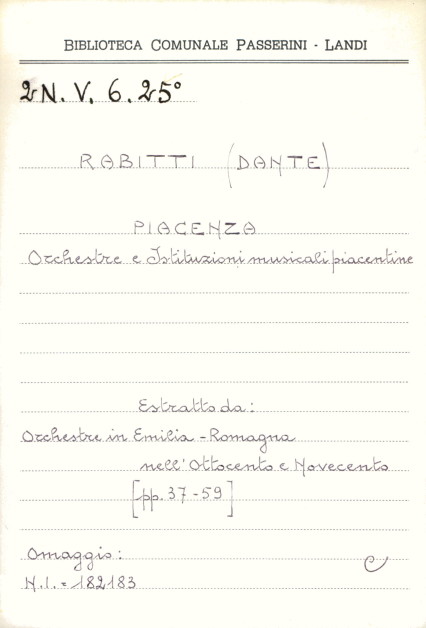 BIBLIOTECA COMUNALE PASSERINI - LANDI
2N. V. 6. 25°
RABITTI (DANTE)
PIACENZA
Orchestre e Istituzioni musicali piacentine
Estratto da:
Orchestre in Emilia-Romagna
nell'Ottocento e Novecento
[pp. 37-59]
Omaggio: e
N.I. = 182183